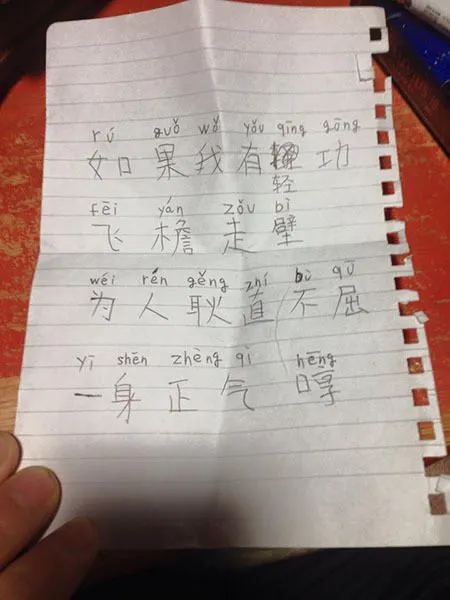 rú guǒ wǒ yǒu qīng gōng
如果我有 功
轻
fēi yán zǒu bì
飞檐走壁
wéi rén gěng zhí bù qū
为人耿直不屈
yī shēn zhèng qì hēng
一身正气 哼